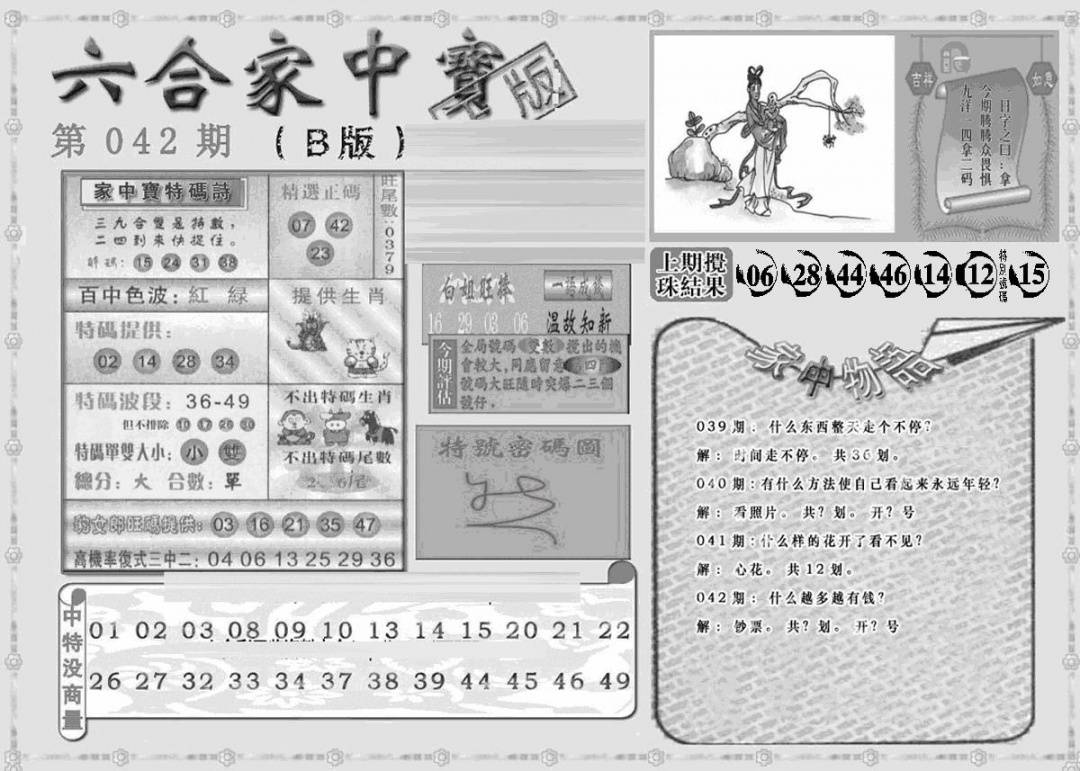 六合家中寶
版
第 042 期 （B版）
家中寶特碼詩
三九合雙是特數，
二四到來快捉住。
解碼：15 24 31 38
精選正碼
07 42
23
旺尾數：0379
百中色波：紅 綠
特碼提供：
02 14 28 34
提供生肖
特碼波段：36-49
但不排除 10 17 26 30
特碼單雙大小：小 雙
總分：大 合數：單
不出特碼生肖
不出特碼尾數
2、6尾
旺碼提供：03 16 21 35 47
高機率復式三中二：04 06 13 25 29 36
白姐旺捧
16 29 03 06
一語成後
溫故知新
今期評估
全局號碼 雙數 攪出的機
會較大，同應留意 第四
號碼大旺隨時突爆二三個
號仔。
特號密碼圖
中特没商量
01 02 03 08 09 10 13 14 15 20 21 22
26 27 32 33 34 37 38 39 44 45 46 49
吉祥
如意
一日字之曰：拿
今期腾腾众畏惧
九洋一四拿二码
上期攪珠結果
06 28 44 46 14 12 特別號碼 15
家中物語
039 期： 什么东西整天走个不停？
解： 时间走不停。 共 36 划。
040 期：有什么方法使自己看起来永远年轻？
解： 看照片。 共？划。 开？号
041 期：什么样的花开了看不见？
解： 心花。 共 12 划。
042 期： 什么越多越有钱？
解： 钞票。 共？划。 开？号